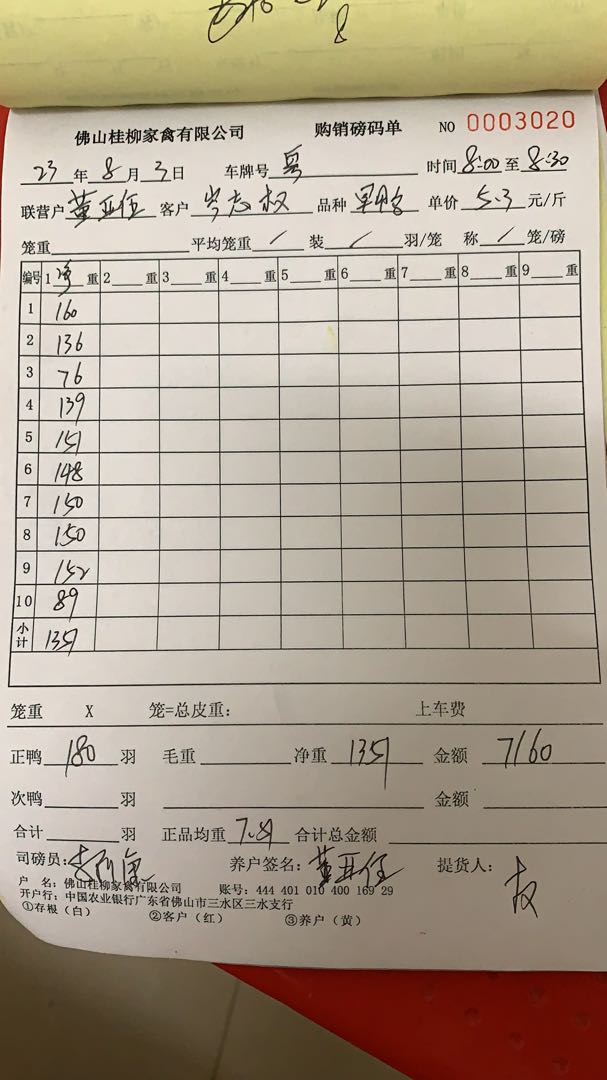 佛山桂柳家禽有限公司 购销磅码单 NO 0003020
23 年 8 月 3 日 车牌号 粤 时间 8:00 至 8:30
联营户 董亚任 客户 岑志权 品种 单价 5.3 元/斤
笼重 平均笼重 / 装 / 羽/笼 称 / 笼/磅
编号 1 净 重 2 重 3 重 4 重 5 重 6 重 7 重 8 重 9 重
1 160
2 136
3 76
4 139
5 151
6 148
7 150
8 150
9 152
10 89
小计 1351
笼重 X 笼=总皮重: 上车费
正鸭 180 羽 毛重 净重 1351 金额 7160
次鸭 羽 金额
合计 羽 正品均重 合计总金额
司磅员: 养户签名: 董亚任 提货人: 权
户 名: 佛山桂柳家禽有限公司 账号: 444 401 010 400 169 29
开户行: 中国农业银行广东省佛山市三水区三水支行
①存根(白) ②客户(红) ③养户(黄)